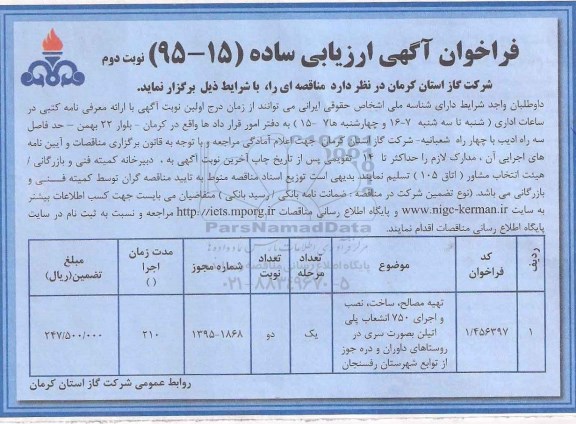 فراخوان آگهی ارزیابی ساده (۱۵-۹۵) نوبت دوم
شرکت گاز استان کرمان در نظر دارد مناقصه ای را، با شرایط ذیل برگزار نماید.
داوطلبان واجد شرایط دارای شناسه ملی اشخاص حقوقی ایرانی می توانند از زمان درج اولین نوبت آگهی با ارائه معرفی نامه کتبی در
ساعات اداری ( شنبه تا سه شنبه ۷-۱۶ و چهارشنبه ها۷ -۱۵ ) به دفتر امور قرار داد ها واقع در کرمان - بلوار ۲۲ بهمن - حد فاصل
سه راه ادیب با چهار راه شعبانیه- شرکت گاز استان کرمان جهت اعلام آمادگی مراجعه و با توجه به قانون برگزاری مناقصات و آیین نامه
های اجرایی آن ، مدارک لازم را حداکثر تا ۱۴ روز پس از تاریخ چاپ آخرین نوبت آگهی به . دبیرخانه کمیته فنی و بازرگانی /
هیئت انتخاب مشاور ( اتاق ۱۰۵ ) تسلیم نمایند. بدیهی است توزیع اسناد مناقصه منوط به تایید مناقصه گران توسط کمیته فنی و
بازرگانی می باشد. (نوع تضمین شرکت در مناقصه : ضمانت نامه بانکی / رسید بانکی ) متقاضیان می بایست جهت کسب اطلاعات بیشتر
به سایت www.nigc-kerman.ir و پایگاه اطلاع رسانی مناقصات http://iets.mporg.ir مراجعه و نسبت به ثبت نام در سایت
پایگاه اطلاع رسانی مناقصات اقدام نمایند.
ParsNamadData
۰۲۱-۸۸۳۴۹۶۷۰-۵
ردیف
کد فراخوان
موضوع
تعداد مرحله
تعداد نوبت
شماره مجوز
مدت زمان اجرا ( )
مبلغ تضمین(ریال)
۱
۱/۴۵۶۳۹۷
تهیه مصالح، ساخت، نصب
و اجرای ۷۵۰ انشعاب پلی
اتیلن بصورت سری در
روستاهای داوران و دره جوز
از توابع شهرستان رفسنجان
یک
دو
۱۳۹۵-۱۸۶۸
۲۱۰
۲۴۷/۵۰۰/۰۰۰
روابط عمومی شرکت گاز استان کرمان